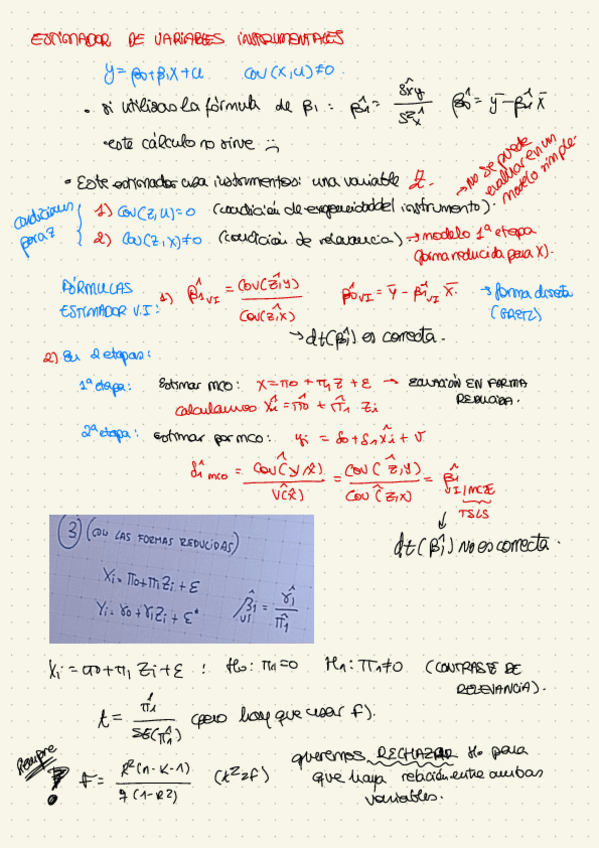 ESTIMADOR DE VARIABLES INSTRUMENTALES
y = β0 + β1x + u   cov(x,u)≠0.
• si utilizas la fórmula de β1: β̂1 = Ŝxy / Ŝ²x   β̂0 = ȳ - β̂1 x̄
• este cálculo no sirve :(
• Este estimador usa instrumentos: una variable Z. → No se puede evaluar en un modelo simple.
condiciones para z
1) cov(z,u)=0 (condición de exogeneidad del instrumento).
2) cov(z,x)≠0 (condición de relevancia) → modelo 1ª etapa (forma reducida para X).
FÓRMULAS ESTIMADOR V.I:
1) β̂1 VI = côv(z,y) / côv(z,x)   β̂0 VI = ȳ - β̂1 VI x̄. → forma directa (GRETL)
→ dt(β̂1) es correcta.
2) En 2 etapas:
1ª etapa: Estimar mco: x = π0 + π1 z + ε → ECUACIÓN EN FORMA REDUCIDA.
calculamos x̂i = π̂0 + π̂1 zi
2ª etapa: estimar por mco: yi = δ0 + δ1 x̂i + v
δ̂1 mco = côv(y,x̂) / v(x̂) = côv(z,y) / côv(z,x) = β̂1 VI/MC2E
TSLS
↓
dt(β̂1) no es correcta.
3) (CON LAS FORMAS REDUCIDAS)
Xi = π0 + π1 Zi + ε
Yi = γ0 + γ1 Zi + ε*   β̂1 VI = γ̂1 / π̂1
Xi = π0 + π1 Zi + ε : H0: π1=0   H1: π1≠0   (CONTRASTE DE RELEVANCIA).
t = π̂1 / SE(π̂1) (pero hay que usar F).
Siempre ! F = R²(n-k-1) / q(1-R²)   (t²=F)   queremos RECHAZAR H0 para
que haya relación entre ambas
variables.